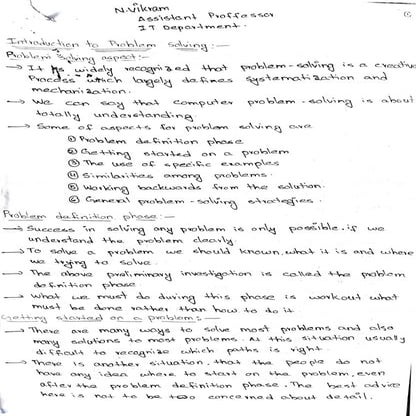 N.Vikram
Assistant Proffessor
IT Department.
Introduction to Problem Solving:—
Problem Solving aspect:—
→ It is widely recognized that problem-solving is a creative
Process which largely defines systematization and
mechanization.
→ We can say that computer problem-solving is about
totally understanding
→ Some of aspects for problem solving are
① Problem definition phase
② Getting started on a problem
③ The use of specific examples
④ Similarities among problems.
⑤ Working backwards from the solution.
⑥ General problem-solving strategies.
Problem definition phase:—
→ Success in solving any problem is only possible if we
understand the problem clearly.
→ To solve a problem we should know what it is and where
we trying to solve.
→ The above preliminary investigation is called the problem
definition phase
→ What we must do during this phase is workout what
must be done rather than how to do it
Getting started on a problems:—
→ There are many ways to solve most problems and also
many solutions to most problems. At this situation usually
difficult to recognize which paths is right
→ There is another situation, that the people do not
have any idea where to start on the problem, even
after the problem definition phase. The best advice
here is not to be too concerned about detail.